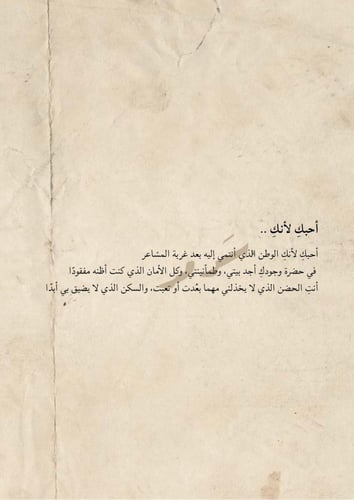 أحبكِ لأنكِ ..
أحبكِ لأنكِ الوطن الذي أنتمي إليه بعد غربة المشاعر
في حضرة وجودكِ أجد بيتي، وطمأنينتي، وكل الأمان الذي كنت أظنه مفقودًا
أنتِ الحضن الذي لا يخذلني مهما بعُدت أو تعبت، والسكن الذي لا يضيق بي أبدًا